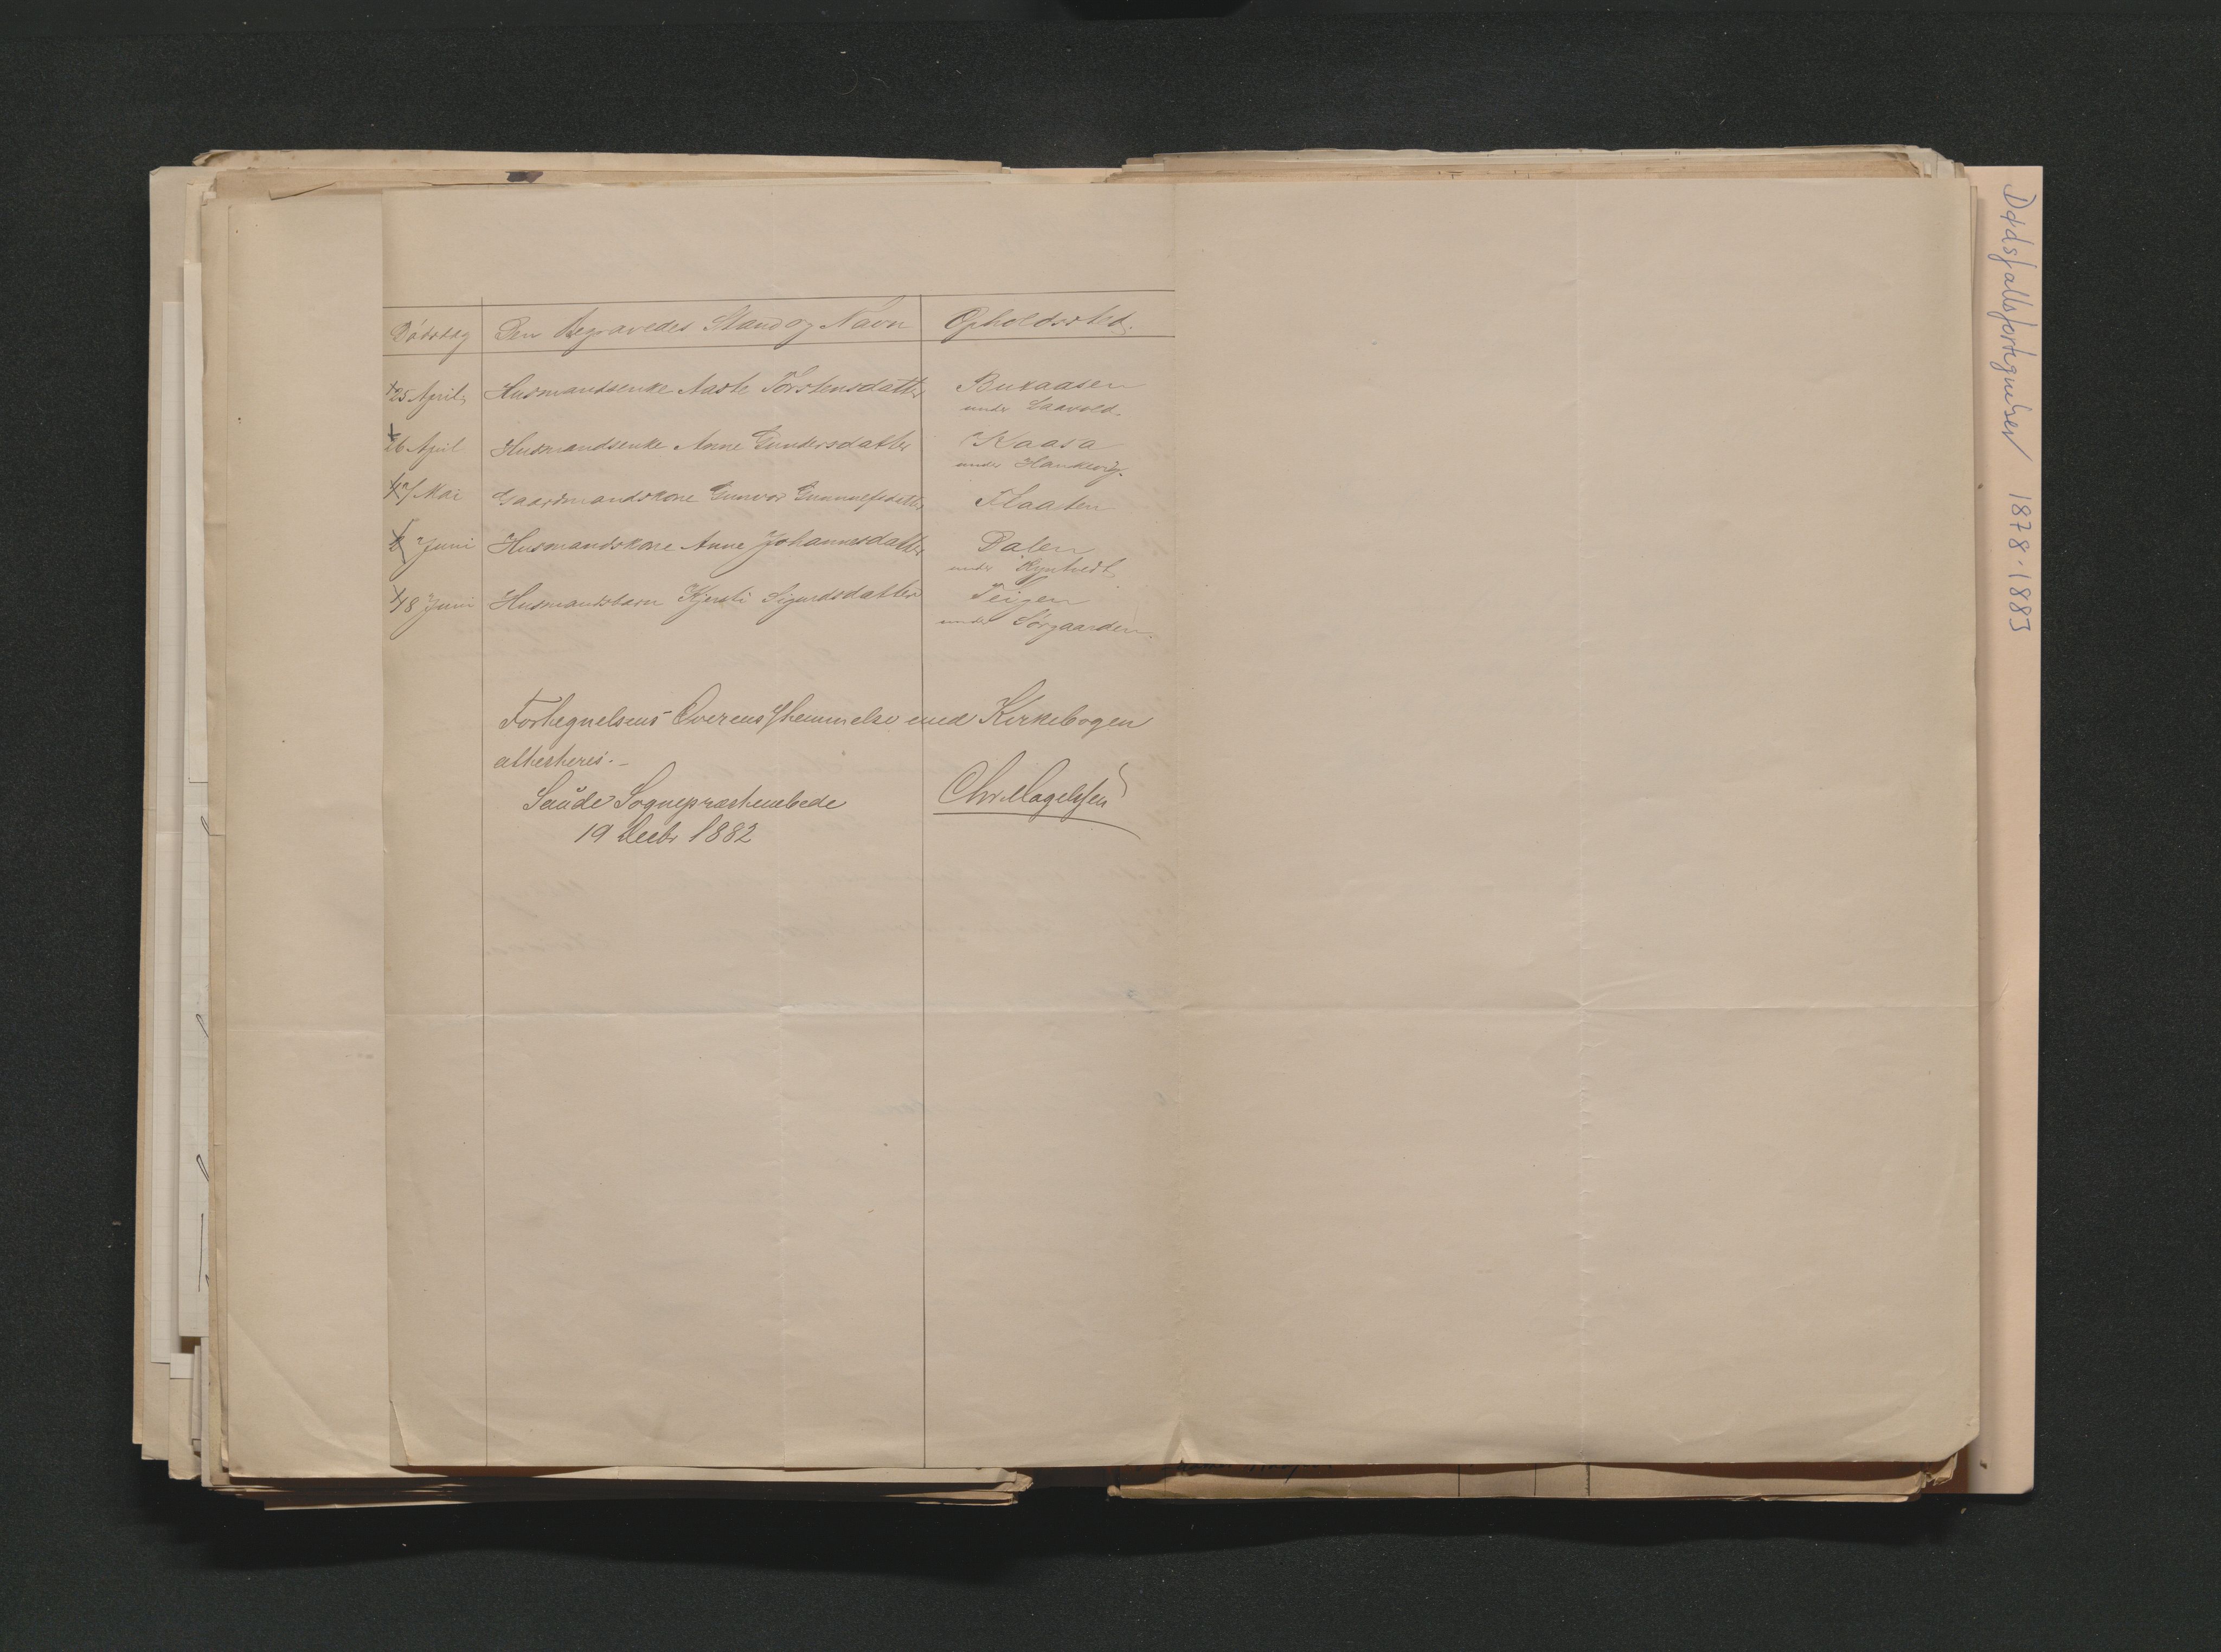 Dødsdag Den Begravedes Stand og Navn Opholdssted.
25 April Husmandsenke Aaste Torstensdatter Bukaasen
under Saavold.
26 April Husmandsenke Anne Gundersdatter Kaasa
under
Mai Gaardmandskone Gunvor Gunnulfsdatter Flaaten
Juni Husmandskone Anne Johannesdatter Dalen
under
18 Juni Husmandsbarn Kjersti Sigurdsdatter Teigen
under Sørgaarden.
Fortegnelsens Overensstemmelse med Kirkebogen
attesteres.-
Saude Sognepræstembede Chr. Magelssen
19 Decbr 1882
Dødsfallsfortegnelser 1878-1883